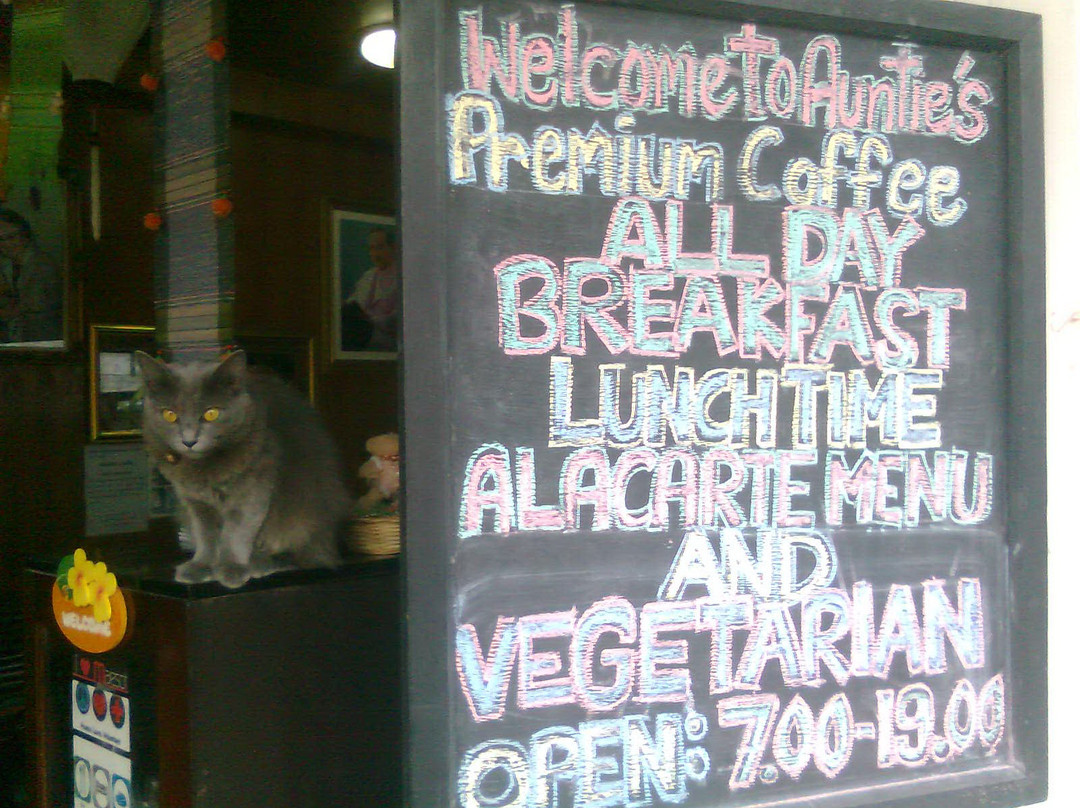 Welcome To Auntie's
Premium Coffee
ALL DAY
BREAKFAST
LUNCH TIME
ALACARTE MENU
AND
VEGETARIAN
OPEN: 7.00-19.00
WELCOME